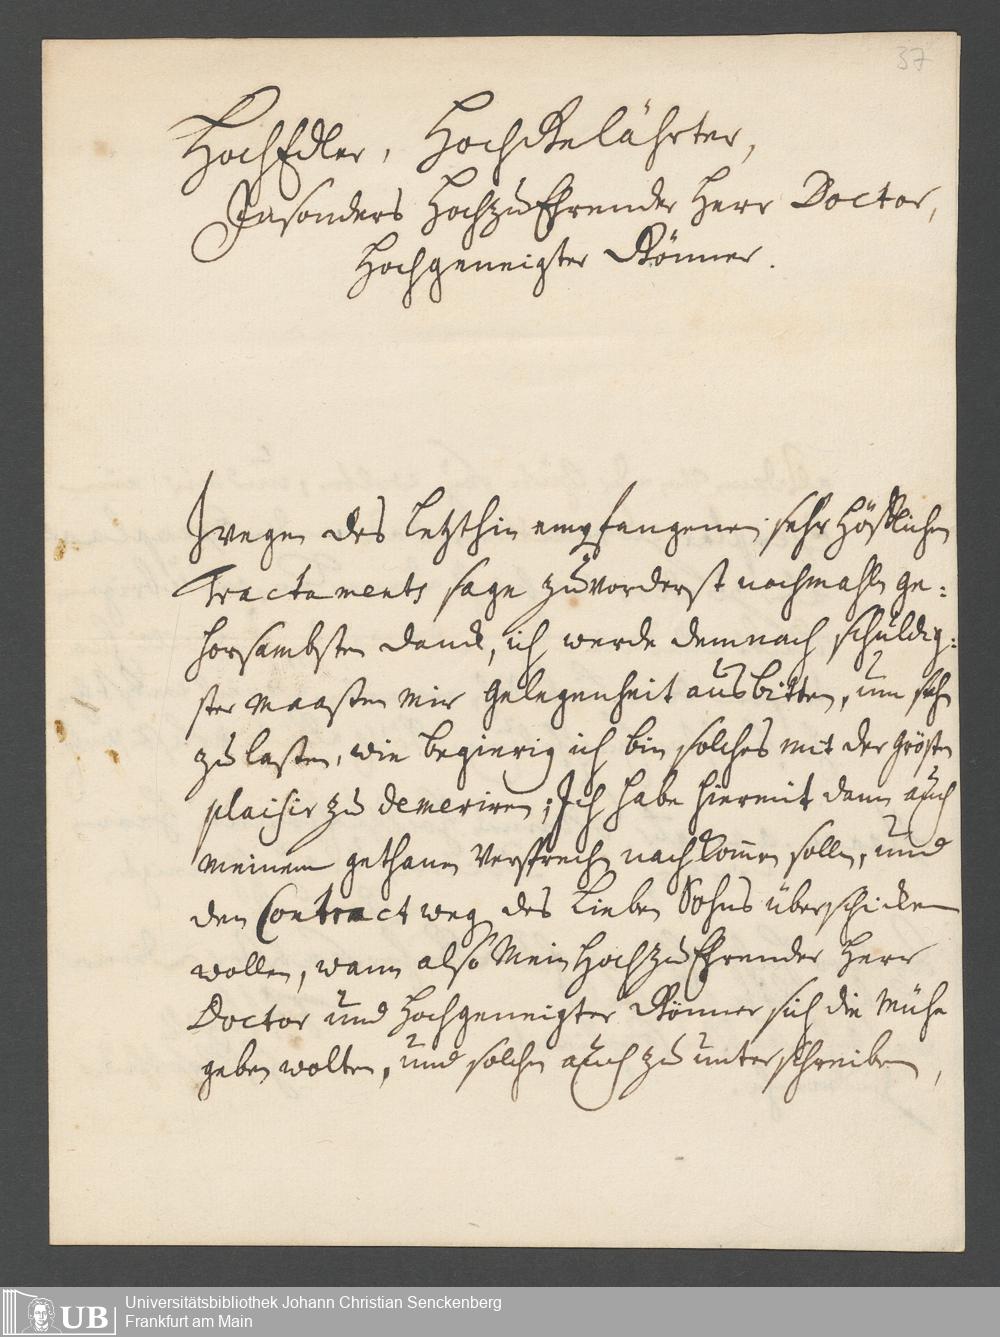 37
HochEdler, HochGelährter,
Insonders HochzuEhrender Herr Doctor,
Hochgeneigter Gönner.
Wegen des letzthin empfangenen sehr höfflichen
Tractaments sage zuvorderst nochmahln ge:
horsambsten danck, ich werde demnach schuldig:
ster maassen mir gelegenheit ausbitten, um sehn
zu lassen, wie begierig ich bin solches mit der grösten
plaisir zu demeriren; Ich habe hiermit dann auch
meinem gethanen Versprechen nachkommen sollen, und
den Contract weg. des lieben Sohns überschicken
wollen, wann also Mein HochzuEhrender Herr
Doctor und Hochgeneigter Gönner sich die Mühe
geben wolten, und solchen auch zu unterschreiben,
UB
Universitätsbibliothek Johann Christian Senckenberg
Frankfurt am Main